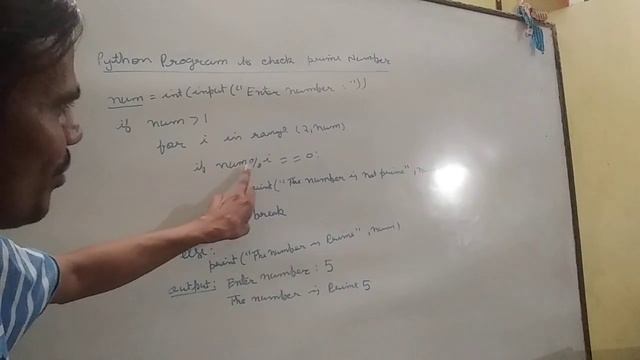 Python Program to check prime Number
num = int(input("Enter number : "))
if num > 1
for i in range (2, num)
if num % i == 0:
print("The number is not prime",
break
else:
print("The number is Prime", num)
output: Enter number : 5
The number is Prime 5